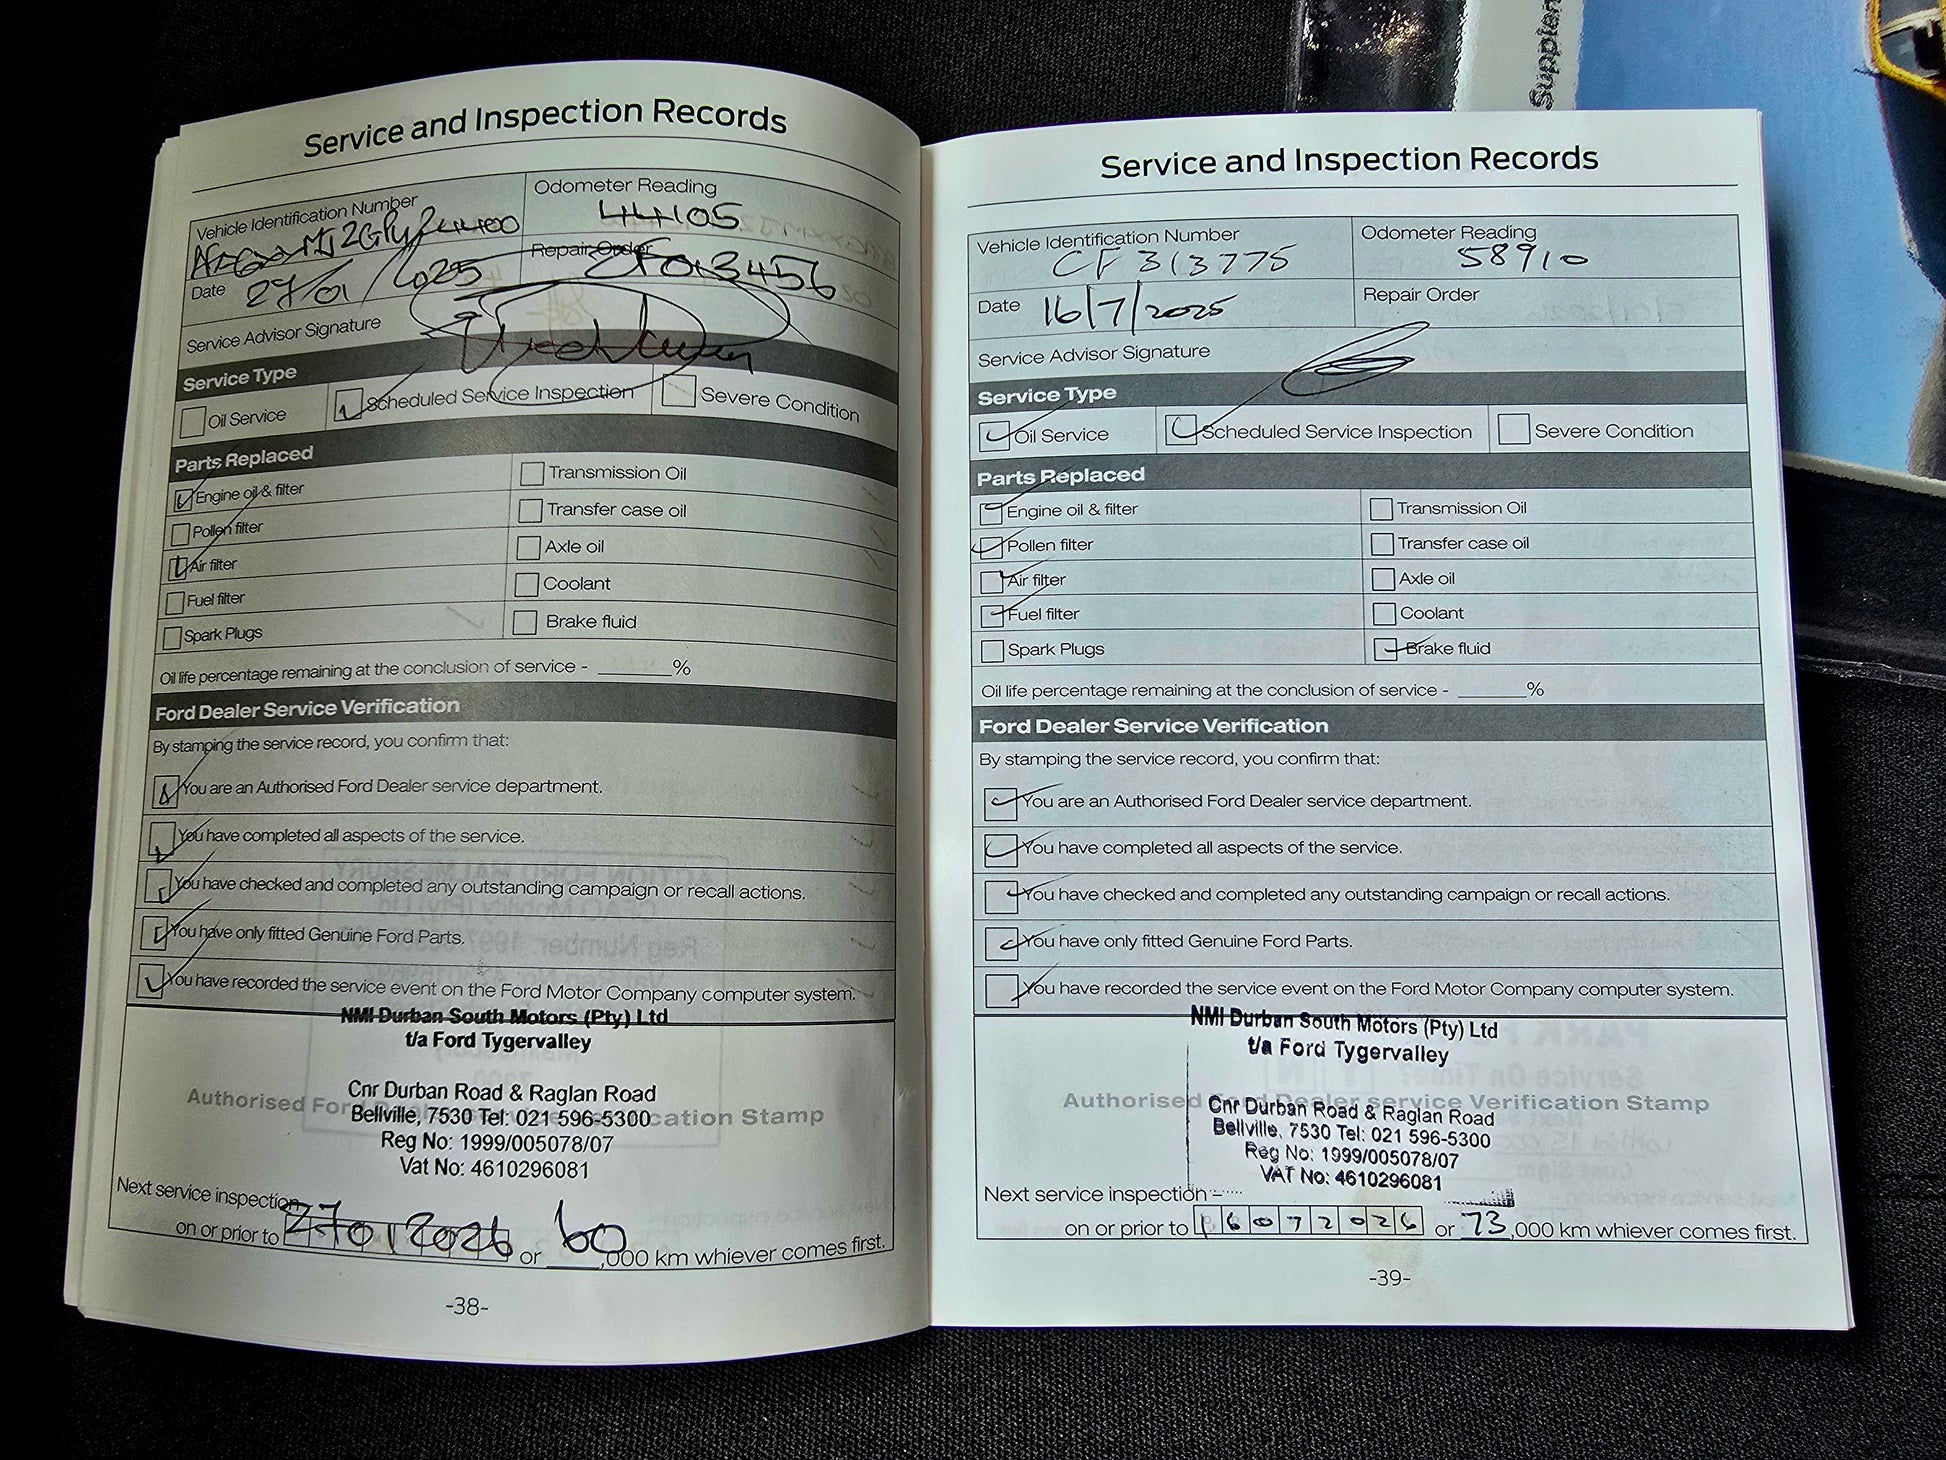 Supplem
Service and Inspection Records
Vehicle Identification Number
Odometer Reading
44105
Date 27/01/2025
Repair Order
CF013456
Service Advisor Signature
Service Type
Oil Service
Scheduled Service Inspection
Severe Condition
Parts Replaced
Engine oil & filter
Transmission Oil
Pollen filter
Transfer case oil
Air filter
Axle oil
Fuel filter
Coolant
Spark Plugs
Brake fluid
Oil life percentage remaining at the conclusion of service - ______%
Ford Dealer Service Verification
By stamping the service record, you confirm that:
You are an Authorised Ford Dealer service department.
You have completed all aspects of the service.
You have checked and completed any outstanding campaign or recall actions.
You have only fitted Genuine Ford Parts.
You have recorded the service event on the Ford Motor Company computer system.
NMI Durban South Motors (Pty) Ltd
t/a Ford Tygervalley
Cnr Durban Road & Raglan Road
Authorised Ford Dealer service Verification Stamp
Bellville, 7530 Tel: 021 596-5300
Reg No: 1999/005078/07
Vat No: 4610296081
Next service inspection
on or prior to 27012026 or 60,000 km whiever comes first.
-38-
Service and Inspection Records
Vehicle Identification Number
CF 313775
Odometer Reading
58910
Date 16/7/2025
Repair Order
Service Advisor Signature
Service Type
Oil Service
Scheduled Service Inspection
Severe Condition
Parts Replaced
Engine oil & filter
Transmission Oil
Pollen filter
Transfer case oil
Air filter
Axle oil
Fuel filter
Coolant
Spark Plugs
Brake fluid
Oil life percentage remaining at the conclusion of service - ______%
Ford Dealer Service Verification
By stamping the service record, you confirm that:
You are an Authorised Ford Dealer service department.
You have completed all aspects of the service.
You have checked and completed any outstanding campaign or recall actions.
You have only fitted Genuine Ford Parts.
You have recorded the service event on the Ford Motor Company computer system.
NMI Durban South Motors (Pty) Ltd
t/a Ford Tygervalley
Authorised Ford Dealer service Verification Stamp
Cnr Durban Road & Raglan Road
Bellville, 7530 Tel: 021 596-5300
Reg No: 1999/005078/07
VAT No: 4610296081
Next service inspection –
on or prior to 16072026 or 73,000 km whiever comes first.
-39-